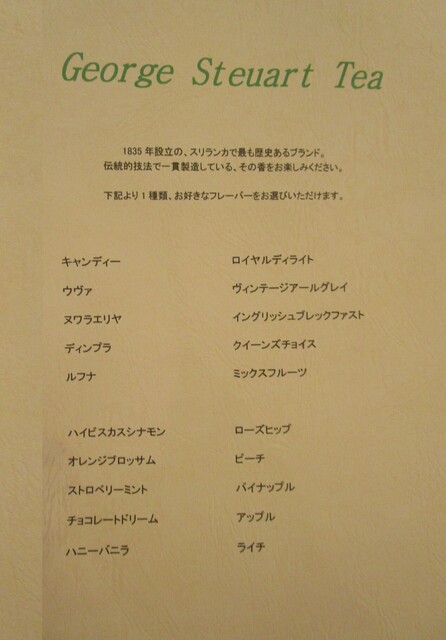 George Steuart Tea
1835年設立の、スリランカで最も歴史あるブランド。
伝統的技法で一貫製造している、その香をお楽しみください。
下記より1種類、お好きなフレーバーをお選びいただけます。
キャンディー
ウヴァ
ヌワラエリヤ
ディンブラ
ルフナ
ロイヤルディライト
ヴィンテージアールグレイ
イングリッシュブレックファスト
クイーンズチョイス
ミックスフルーツ
ハイビスカスシナモン
オレンジブロッサム
ストロベリーミント
チョコレートドリーム
ハニーバニラ
ローズヒップ
ピーチ
パイナップル
アップル
ライチ